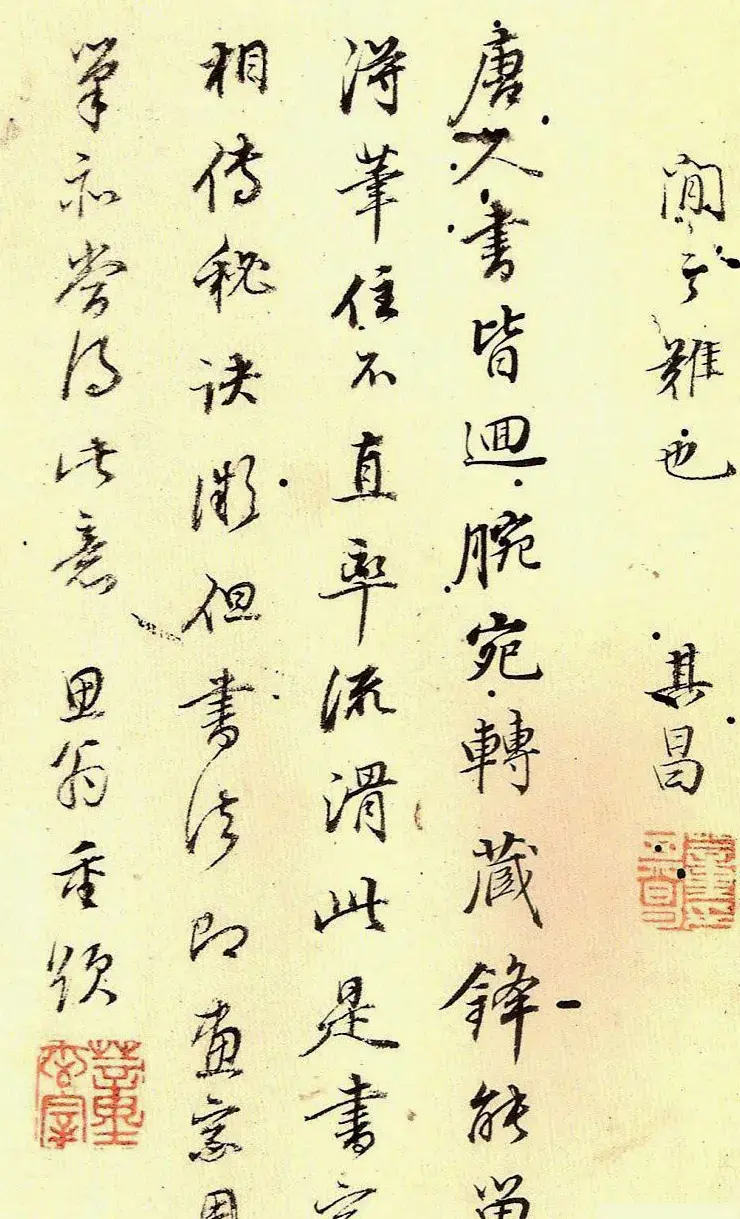 閒之難也 其昌
唐人書皆迴腕宛轉藏鋒能留
得筆住不直率流滑此是書家
相傳秘訣微但書法即畫家用
筆亦當得此意 思翁重題